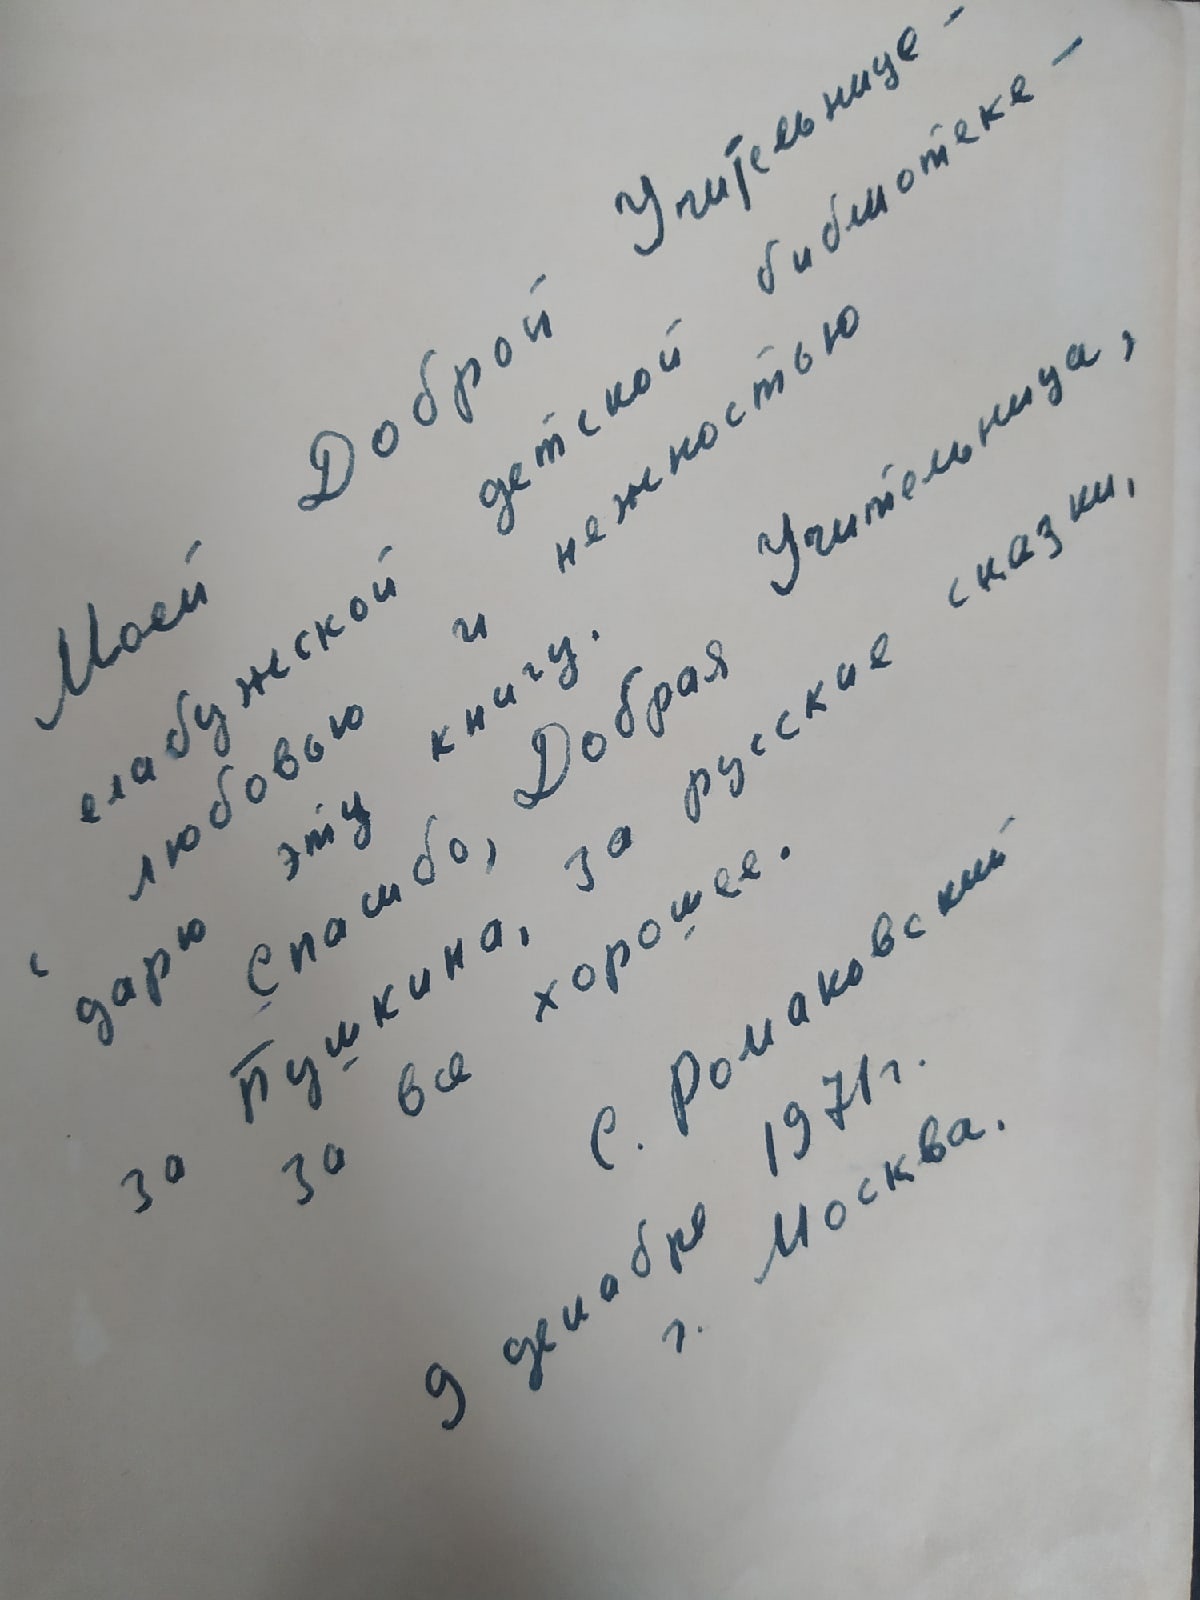 Моей Доброй Учительнице –
елабужской детской библиотеке –
с любовью и нежностью
дарю эту книгу.
Спасибо, Добрая Учительница,
за Пушкина, за русские сказки,
за все хорошее.
С. Романовский
9 декабря 1971 г.
г. Москва.